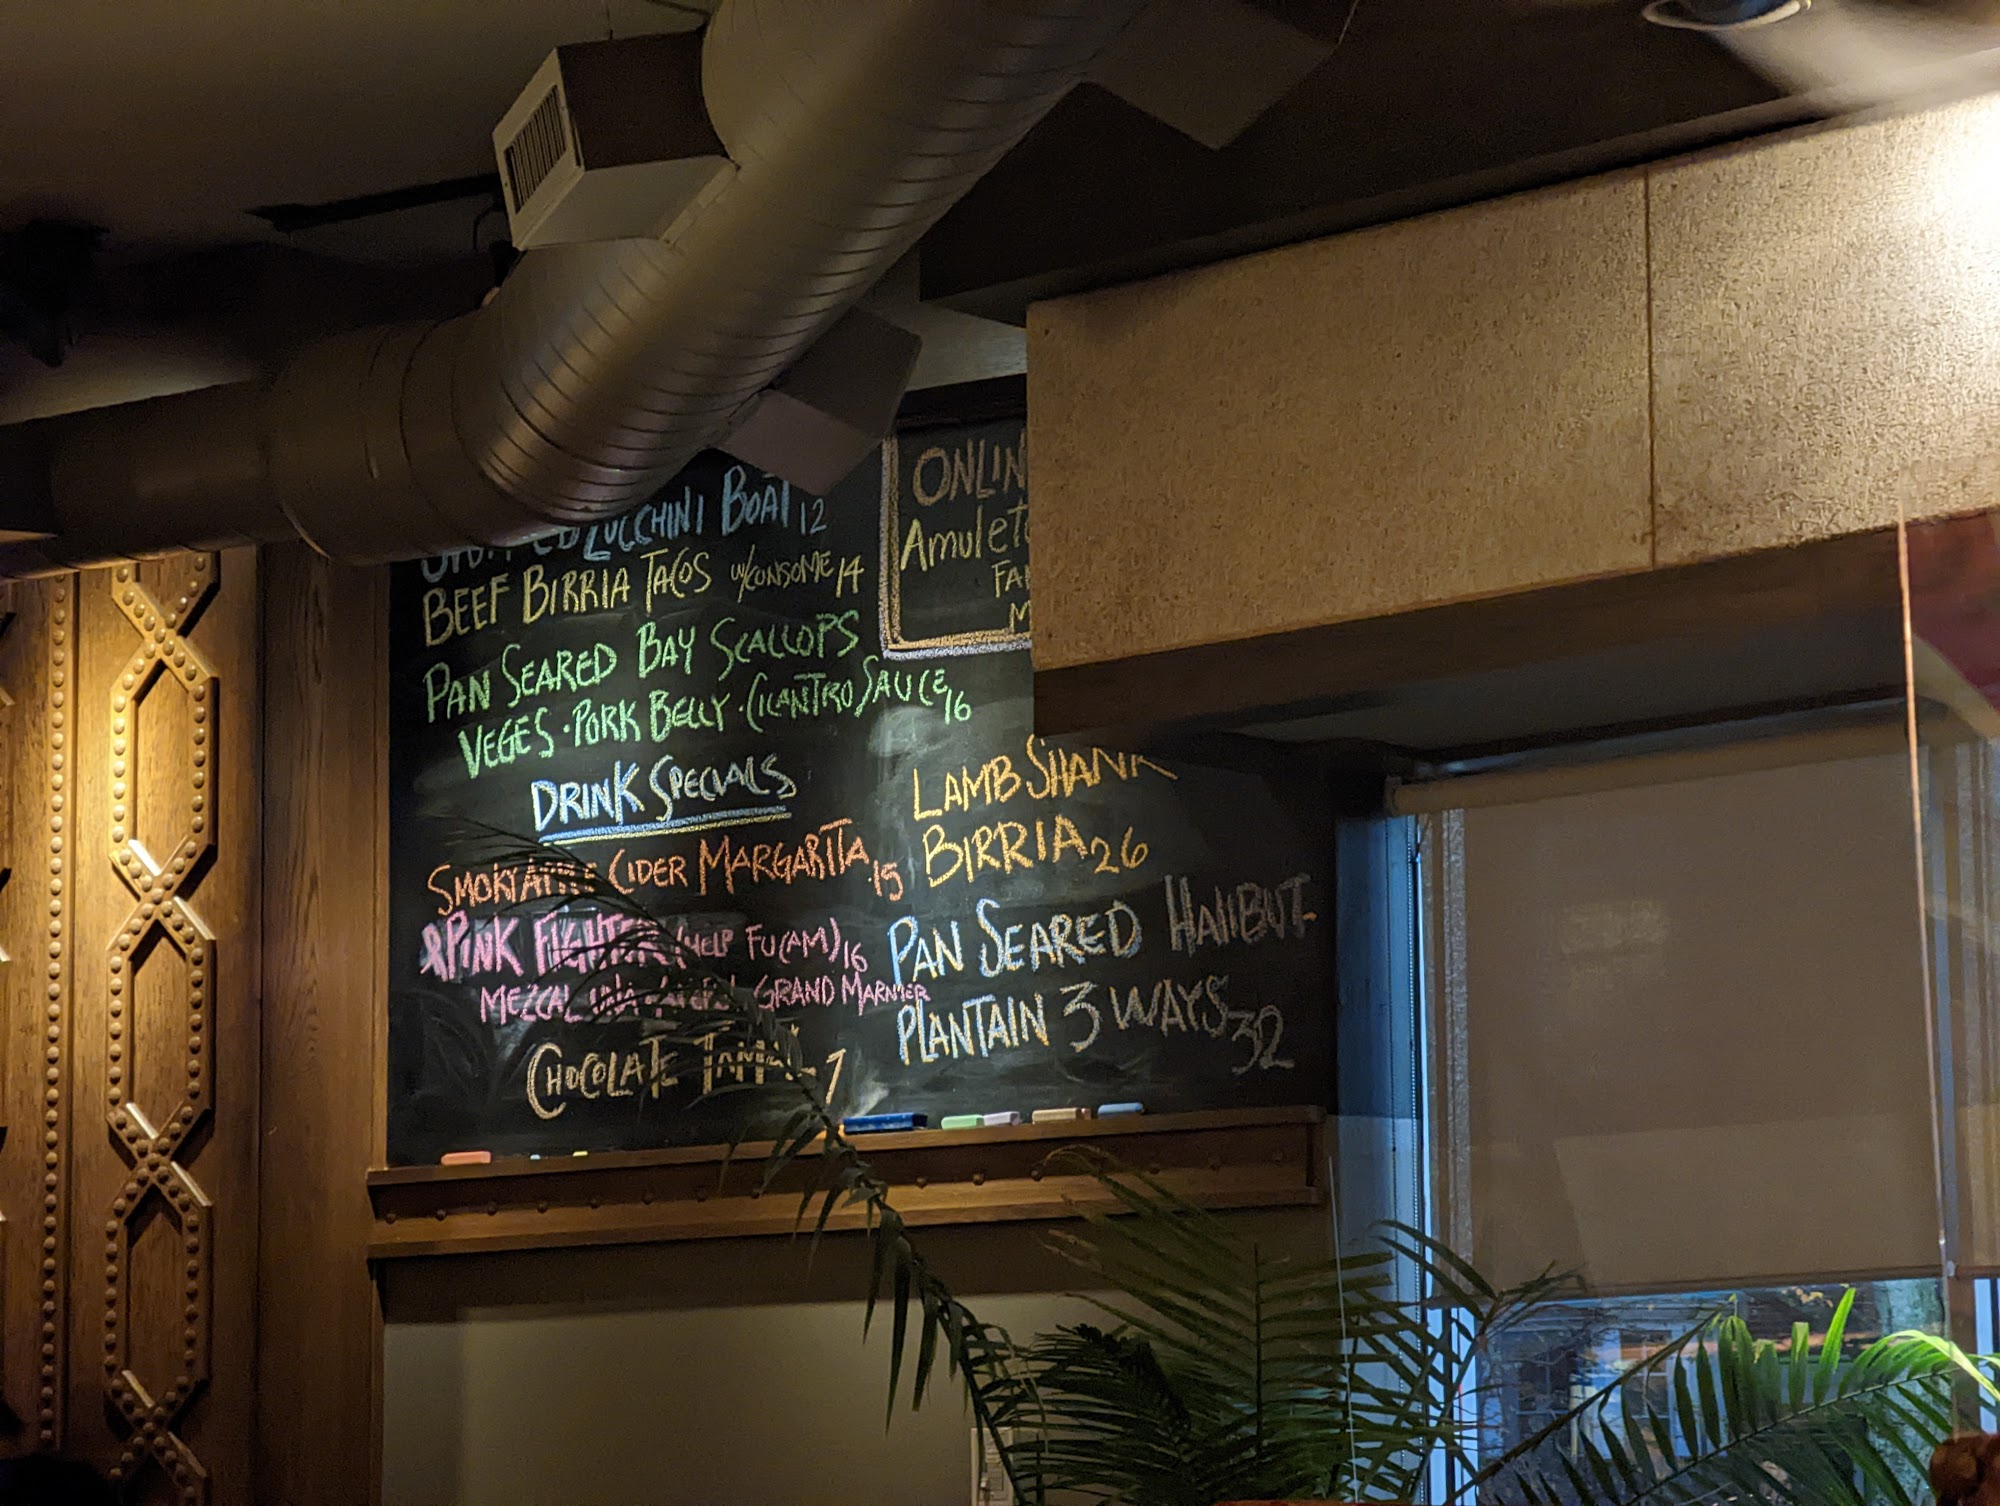 ZUCCHINI BOAT 12
BEEF BIRRIA TACOS w/CONSOME 14
PAN SEARED BAY SCALLOPS
VEGES · PORK BELLY · CILANTRO SAUCE 16
DRINK SPECIALS
SMOKY APPLE CIDER MARGARITA 15
PINK FIGHTER (HELP FU CAM) 16
MEZCAL GRAND MARNIER
CHOCOLATE 7
ONLIN
Amulet
FA
M
LAMB SHANK
BIRRIA 26
PAN SEARED HALIBUT-
PLANTAIN 3 WAYS 32